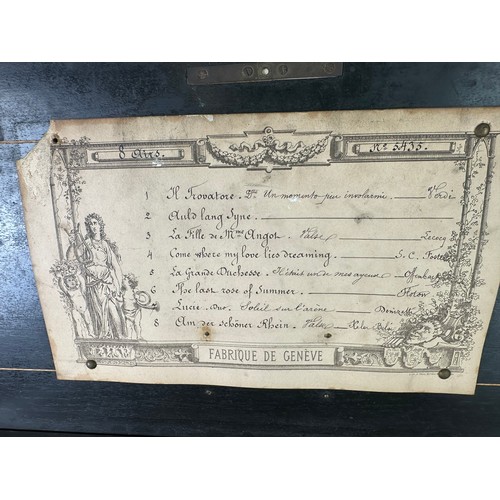 8 Airs. No 5435.
1 Il Trovatore. Un momento puo involarmi Verdi
2 Auld lang Syne
3 La Fille de Mme Angot. Valse Lecocq
4 Come where my love lies dreaming S. C. Foster
5 La Grande Duchesse. Offenbach
6 The last rose of Summer Flotow
7 Lucie. Duo. Soleil sur l'arène Donizetti
8 Am der schöner Rhein. Valse Kéler Béla
FABRIQUE DE GENÈVE